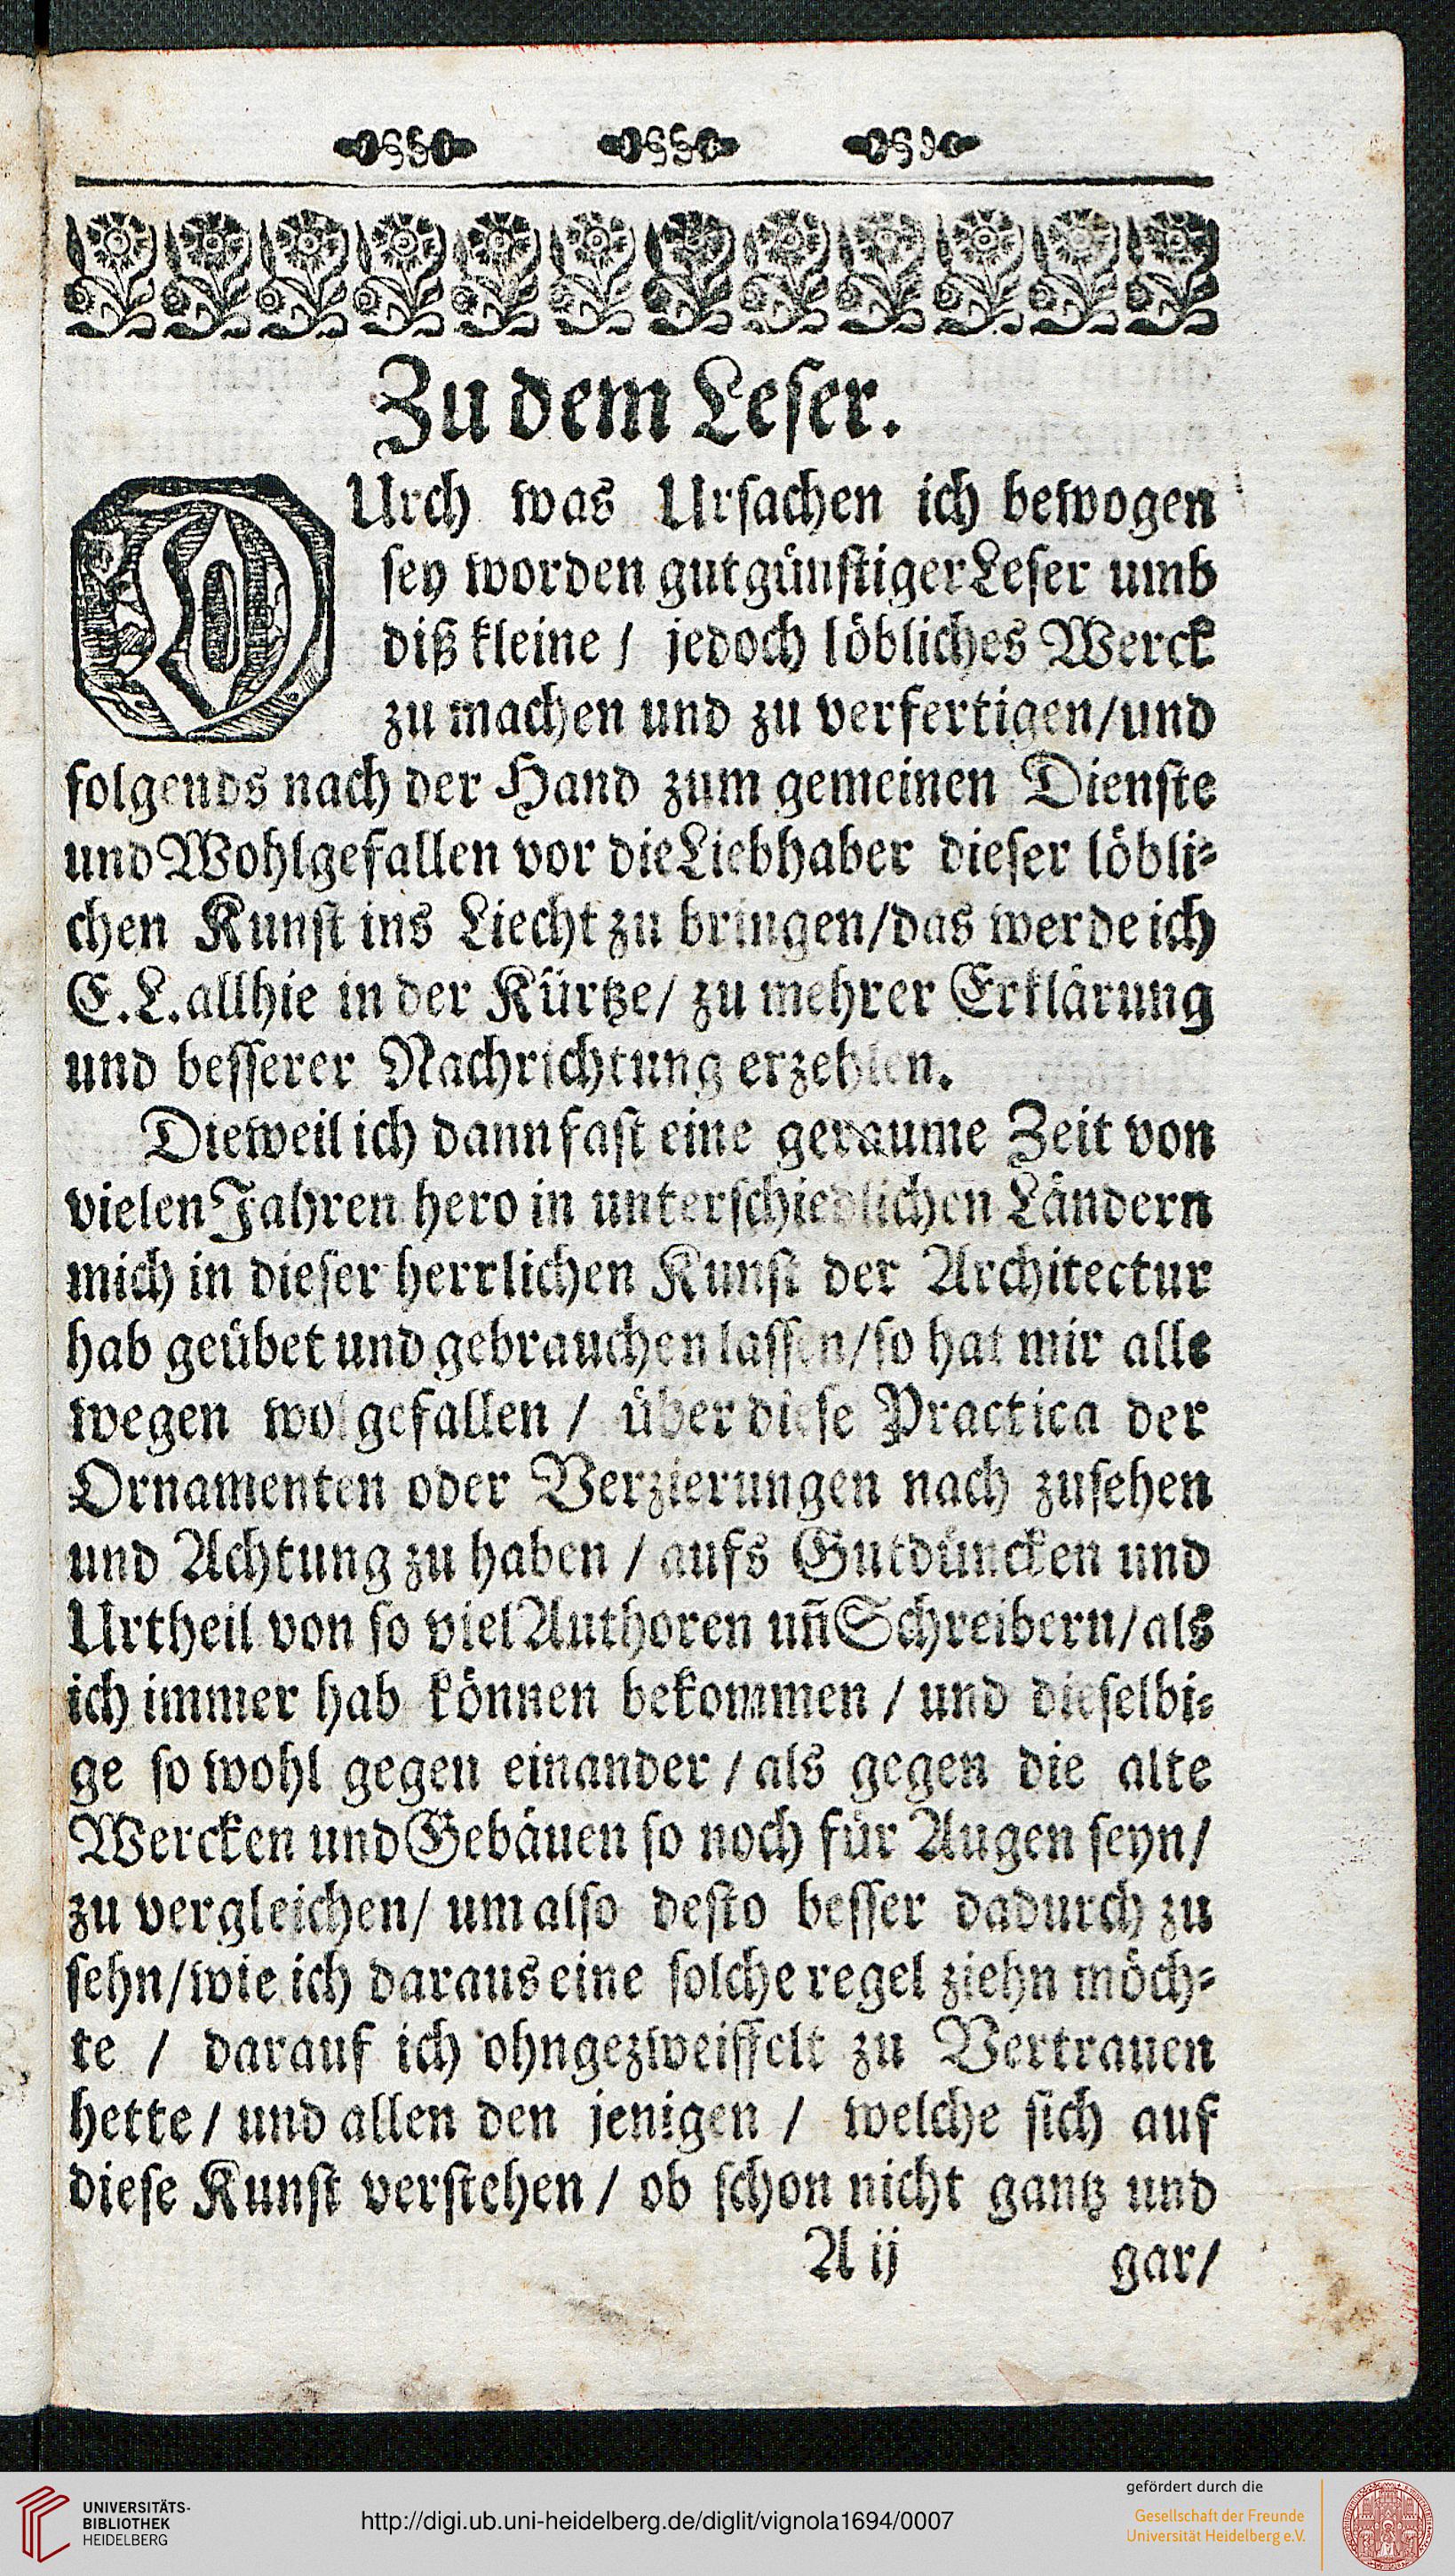 Zu dem Leſer.
DUrch was Urſachen ich bewogen
ſey worden gutguͤnſtiger Leſer umb
diß kleine / jedoch loͤbliches Werck
zu machen und zu verfertigen/und
folgends nach der Hand zum gemeinen Dienſte
und Wohlgefallen vor die Liebhaber dieſer loͤbli⸗
chen Kunſt ins Liecht zu bringen/das werde ich
E.L. allhie in der Kuͤrtze/ zu mehrer Erklaͤrung
und beſſerer Nachrichtung erzehlen.
Dieweil ich dann faſt eine geraume Zeit von
vielen Jahren hero in unterſchiedlichen Laͤndern
mich in dieſer herrlichen Kunſt der Architectur
hab geuͤbet und gebrauchen laſſen/ſo hat mir alle
wegen wol gefallen / uͤber dieſe Practica der
Ornamenten oder Verzierungen nach zuſehen
und Achtung zu haben / aufs Gutduͤncken und
Urtheil von ſo viel Authoren uñ Schreibern/als
ich immer hab koͤnnen bekommen / und dieſelbi⸗
ge ſo wohl gegen einander / als gegen die alte
Wercken und Gebaͤuen ſo noch fuͤr Augen ſeyn/
zu vergleichen/ um alſo deſto beſſer dadurch zu
ſehn/wie ich daraus eine ſolche regel ziehn moͤch⸗
te / darauf ich ohngezweiffelt zu Vertrauen
hette / und allen den jenigen / welche ſich auf
dieſe Kunſt verſtehen / ob ſchon nicht gantz und
A ij gar/
UNIVERSITÄTS-
BIBLIOTHEK
HEIDELBERG
http://digi.ub.uni-heidelberg.de/diglit/vignola1694/0007
gefördert durch die
Gesellschaft der Freunde
Universität Heidelberg e.V.